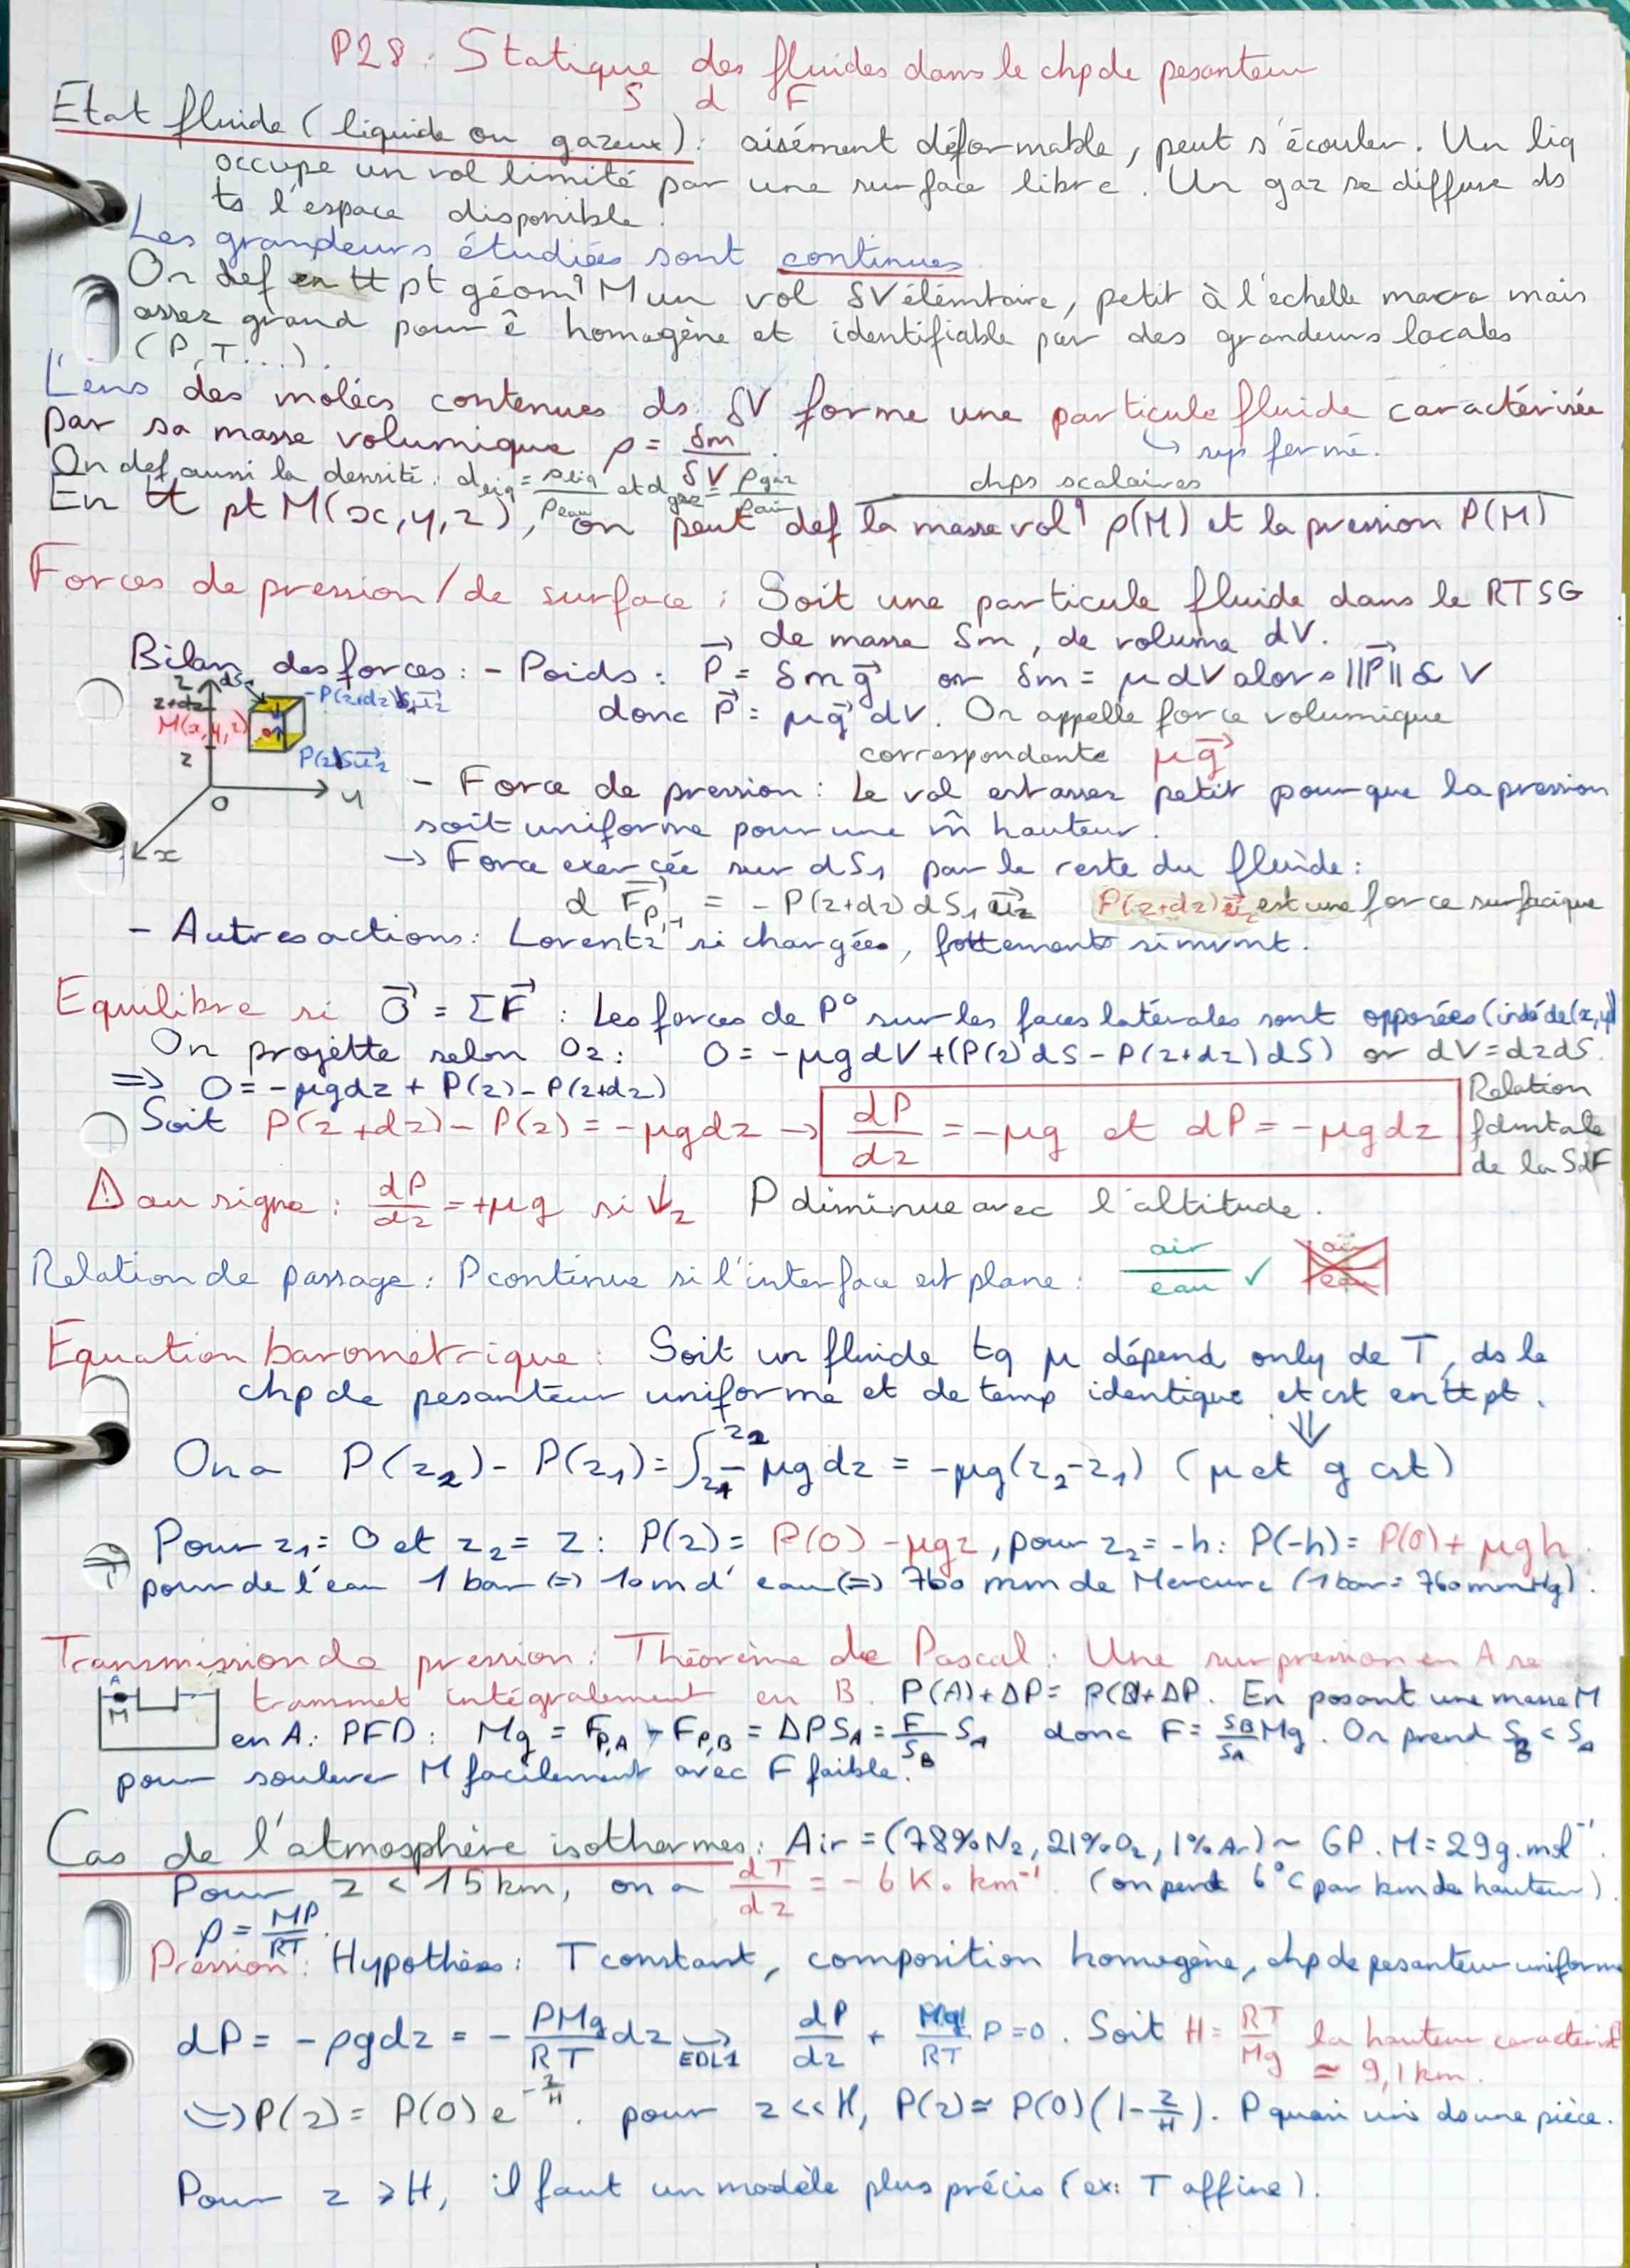 P28 : Statique des fluides dans le chp de pesanteur
S d F
Etat fluide (liquide ou gazeux) : aisément déformable, peut s'écouler. Un liq
occupe un vol limité par une surface libre. Un gaz se diffuse ds
ts l'espace disponible.
Les grandeurs étudiées sont continues.
On def en tt pt géomq M un vol δV élémtaire, petit à l'échelle macro mais
assez grand pour ê homogène et identifiable par des grandeurs locales
(P, T...).
L'ens des molécs contenues ds δV forme une particule fluide caractérisée
par sa masse volumique ρ = δm/δV.
↳ sys fermé.
On def aussi la densité : d liq = ρliq/ρeau et d gaz = ρgaz/ρair
chps scalaires
En tt pt M(x,y,z), on peut def la masse volq ρ(M) et la pression P(M)
Forces de pression / de surface : Soit une particule fluide dans le RTSG
de masse δm, de volume dV.
Bilan des forces : - Poids : P⃗ = δm g⃗ or δm = μ dV alors ||P⃗|| α V
donc P⃗ = μg⃗ dV. On appelle force volumique
correspondante μg⃗
z
z+dz
dS1
-P(z+dz)dS1 u⃗z
M(x,y,z)
z
P(z)dS u⃗z
O
y
x
- Force de pression : Le vol est assez petit pour que la pression
soit uniforme pour une m̂ hauteur.
→ Force exercée sur dS1 par le reste du fluide :
d F⃗P,1 = - P(z+dz) dS1 u⃗z P(z+dz) u⃗z est une force surfacique
- Autres actions : Lorentz si chargées, frottements si mvmt.
Equilibre si 0⃗ = ΣF⃗ : Les forces de P° sur les faces latérales sont opposées (indé de (x,y))
On projette selon Oz : 0 = -μgdV + (P(z)dS - P(z+dz)dS) or dV = dzdS.
⟹ 0 = -μgdz + P(z) - P(z+dz)
Soit P(z+dz) - P(z) = -μgdz → dP/dz = -μg et dP = -μgdz
Relation
fdmtale
de la SdF
⚠ au signe : dP/dz = +μg si ↓z P diminue avec l'altitude.
Relation de passage : P continue si l'interface est plane : air/eau ✓ air/eau
Equation barométrique : Soit un fluide tq μ dépend only de T, ds le
chp de pesanteur uniforme et de temp identique et cst en tt pt.
⇓
On a P(z2) - P(z1) = ∫z1^z2 - μgdz = -μg(z2-z1) (μ et g cst)
Pour z1 = 0 et z2 = z : P(z) = P(0) - μgz, pour z2 = -h : P(-h) = P(0) + μgh.
pour de l'eau 1 bar (=) 10 m d'eau (=) 760 mm de Mercure (1 bar = 760 mmHg).
Transmission de pression : Théorème de Pascal : Une surpression en A se
transmet intégralement en B. P(A)+ΔP = P(B)+ΔP. En posant une masse M
A
M
en A : PFD : Mg = FP,A - FP,B = ΔPSA = F/SB SA donc F = SB/SA Mg. On prend SB < SA
pour soulever M facilement avec F faible.
Cas de l'atmosphère isothermes : Air = (78% N2, 21% O2, 1% Ar) ~ GP. M = 29 g.mol⁻¹.
Pour z < 15 km, on a dT/dz = - 6 K.km⁻¹ (on perd 6°C par km de hauteur).
ρ = MP/RT.
Pression : Hypothèses : T constant, composition homogène, chp de pesanteur uniforme
dP = -ρgdz = - PMg/RT dz → EDL1 dP/dz + Mg/RT P = 0. Soit H = RT/Mg la hauteur caractérist
≃ 9,1 km.
⟹ P(z) = P(0) e^(-z/H). pour z << H, P(z) ≈ P(0)(1 - z/H). P quasi uni ds une pièce.
Pour z ⩾ H, il faut un modèle plus précis (ex : T affine).